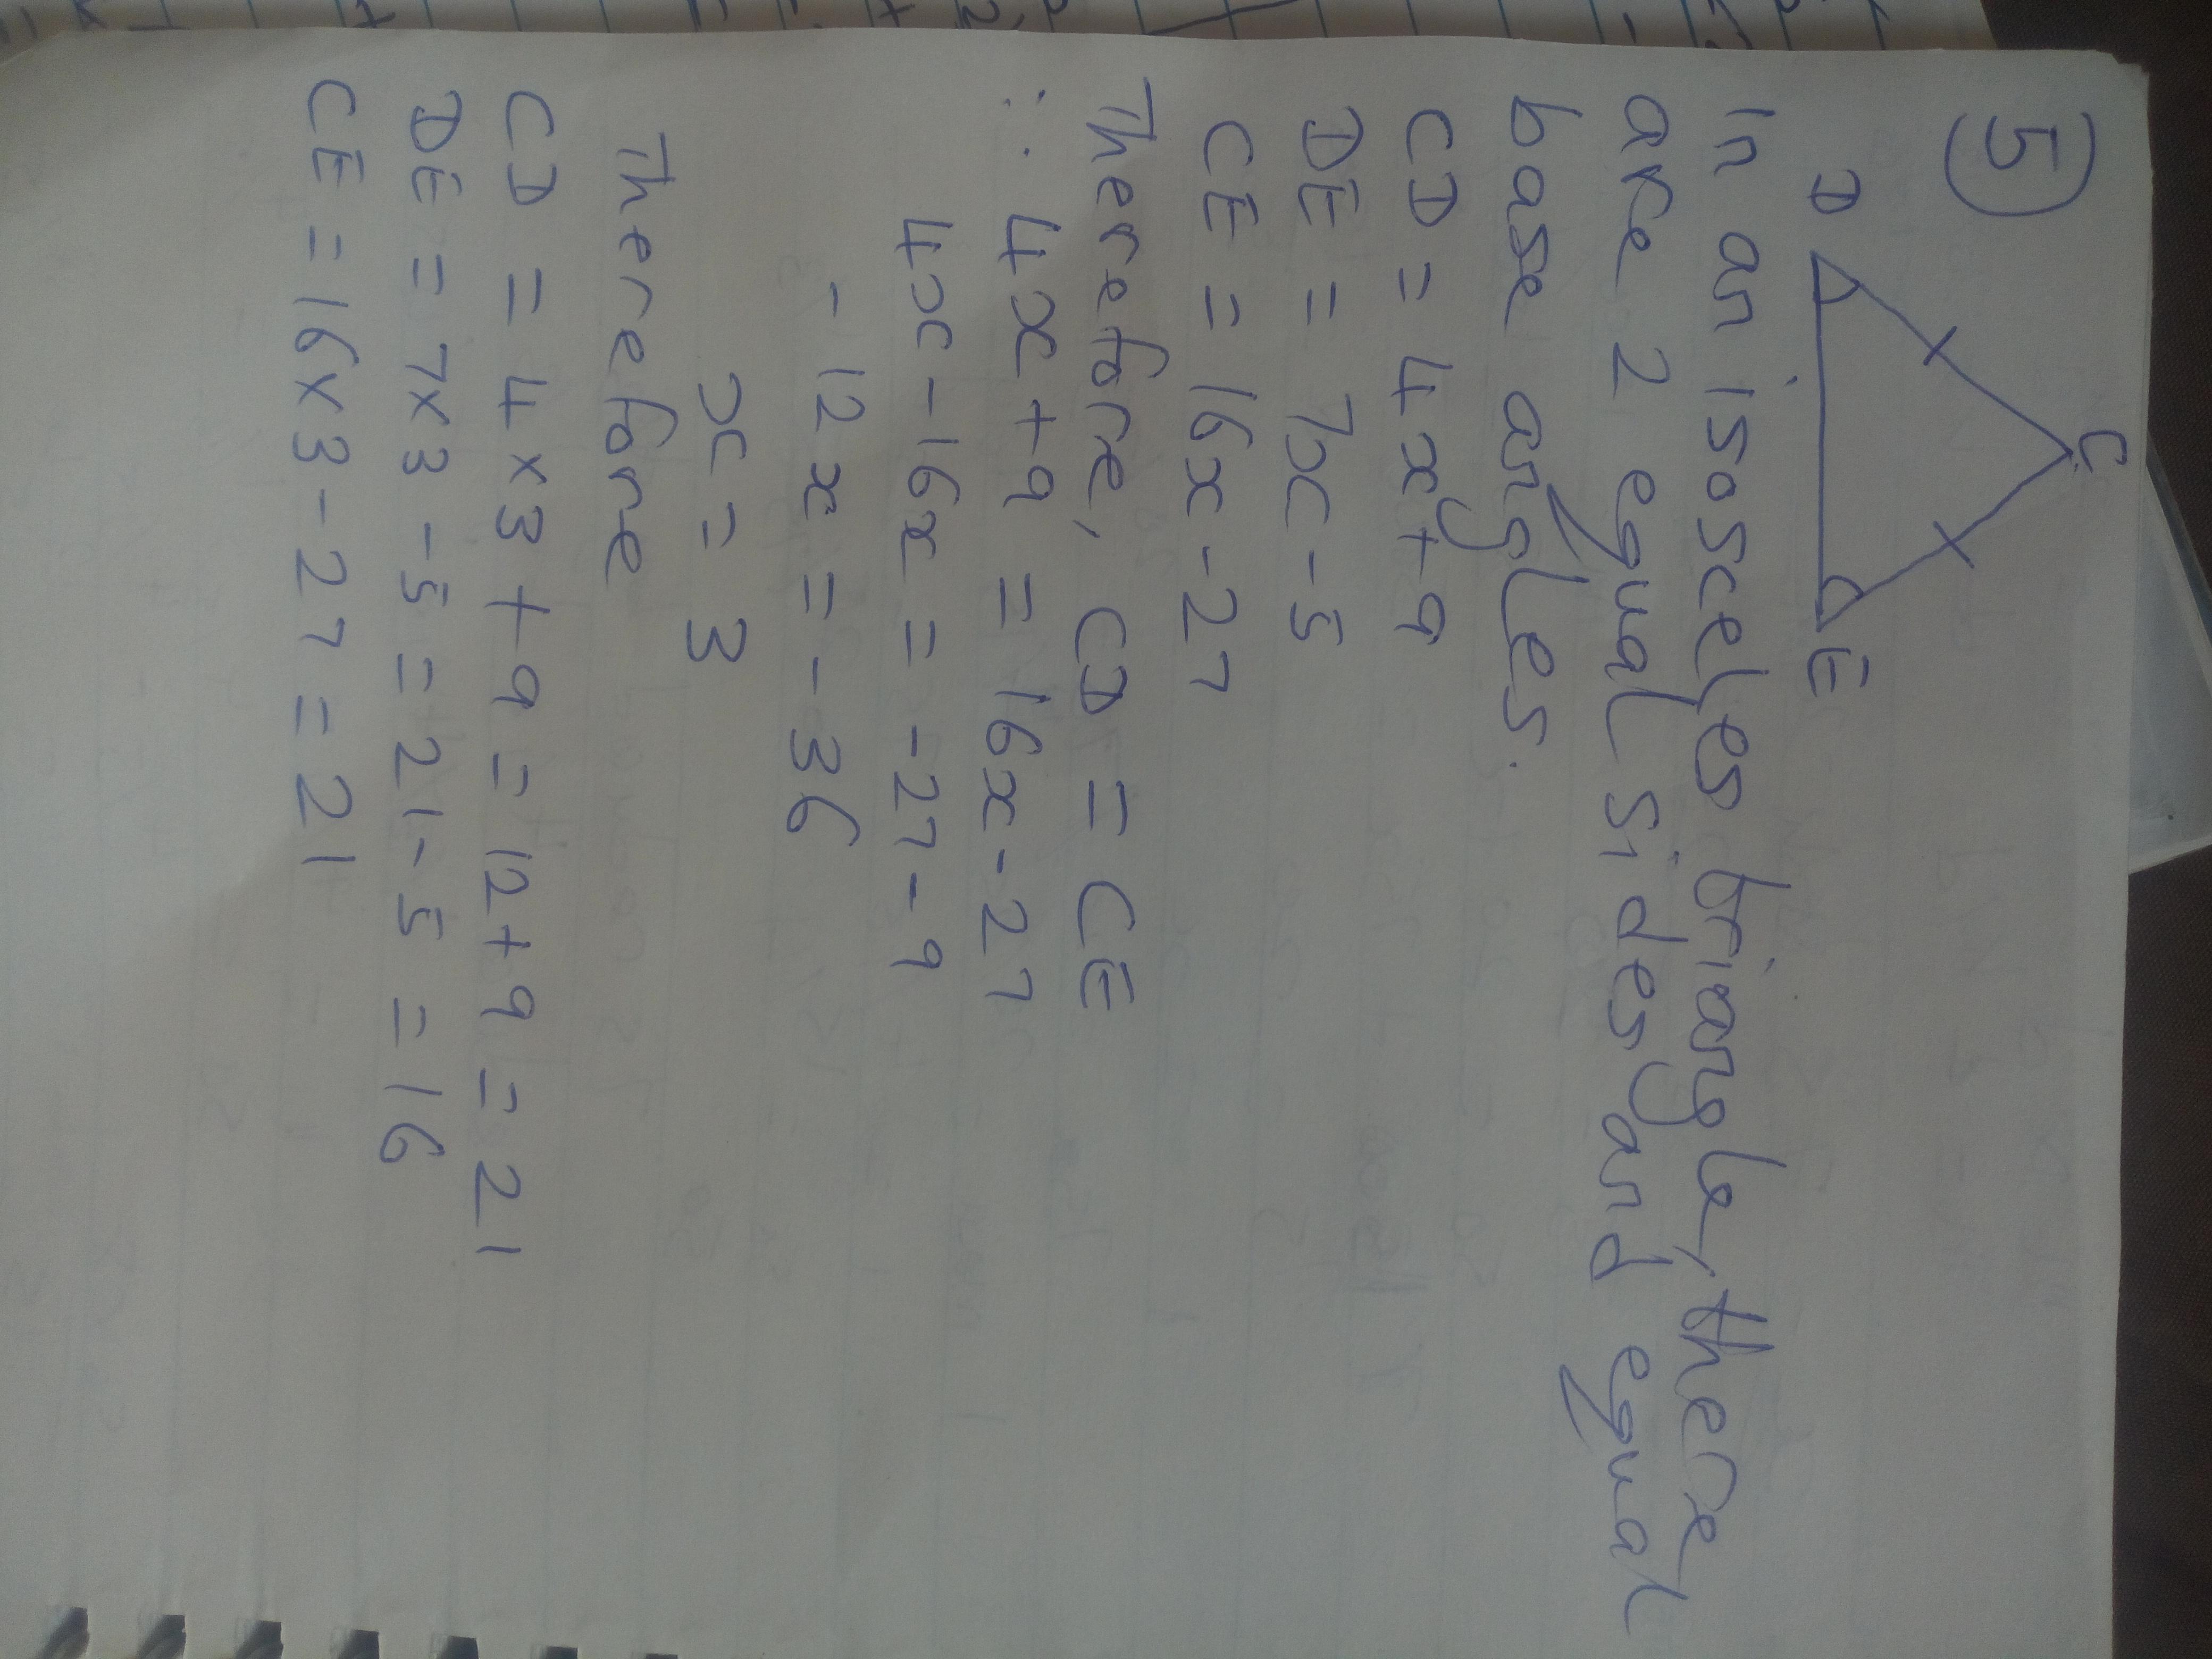 5
C
D
E
In an isosceles triangle, there
are 2 equal sides and equal
base angles.
CD = 4x+9
DE = 7x-5
CE = 16x-27
Therefore, CD = CE
∴ 4x+9 = 16x-27
4x-16x = -27-9
-12x = -36
x = 3
Therefore
CD = 4×3+9 = 12+9 = 21
DE = 7×3-5 = 21-5 = 16
CE = 16×3-27 = 21